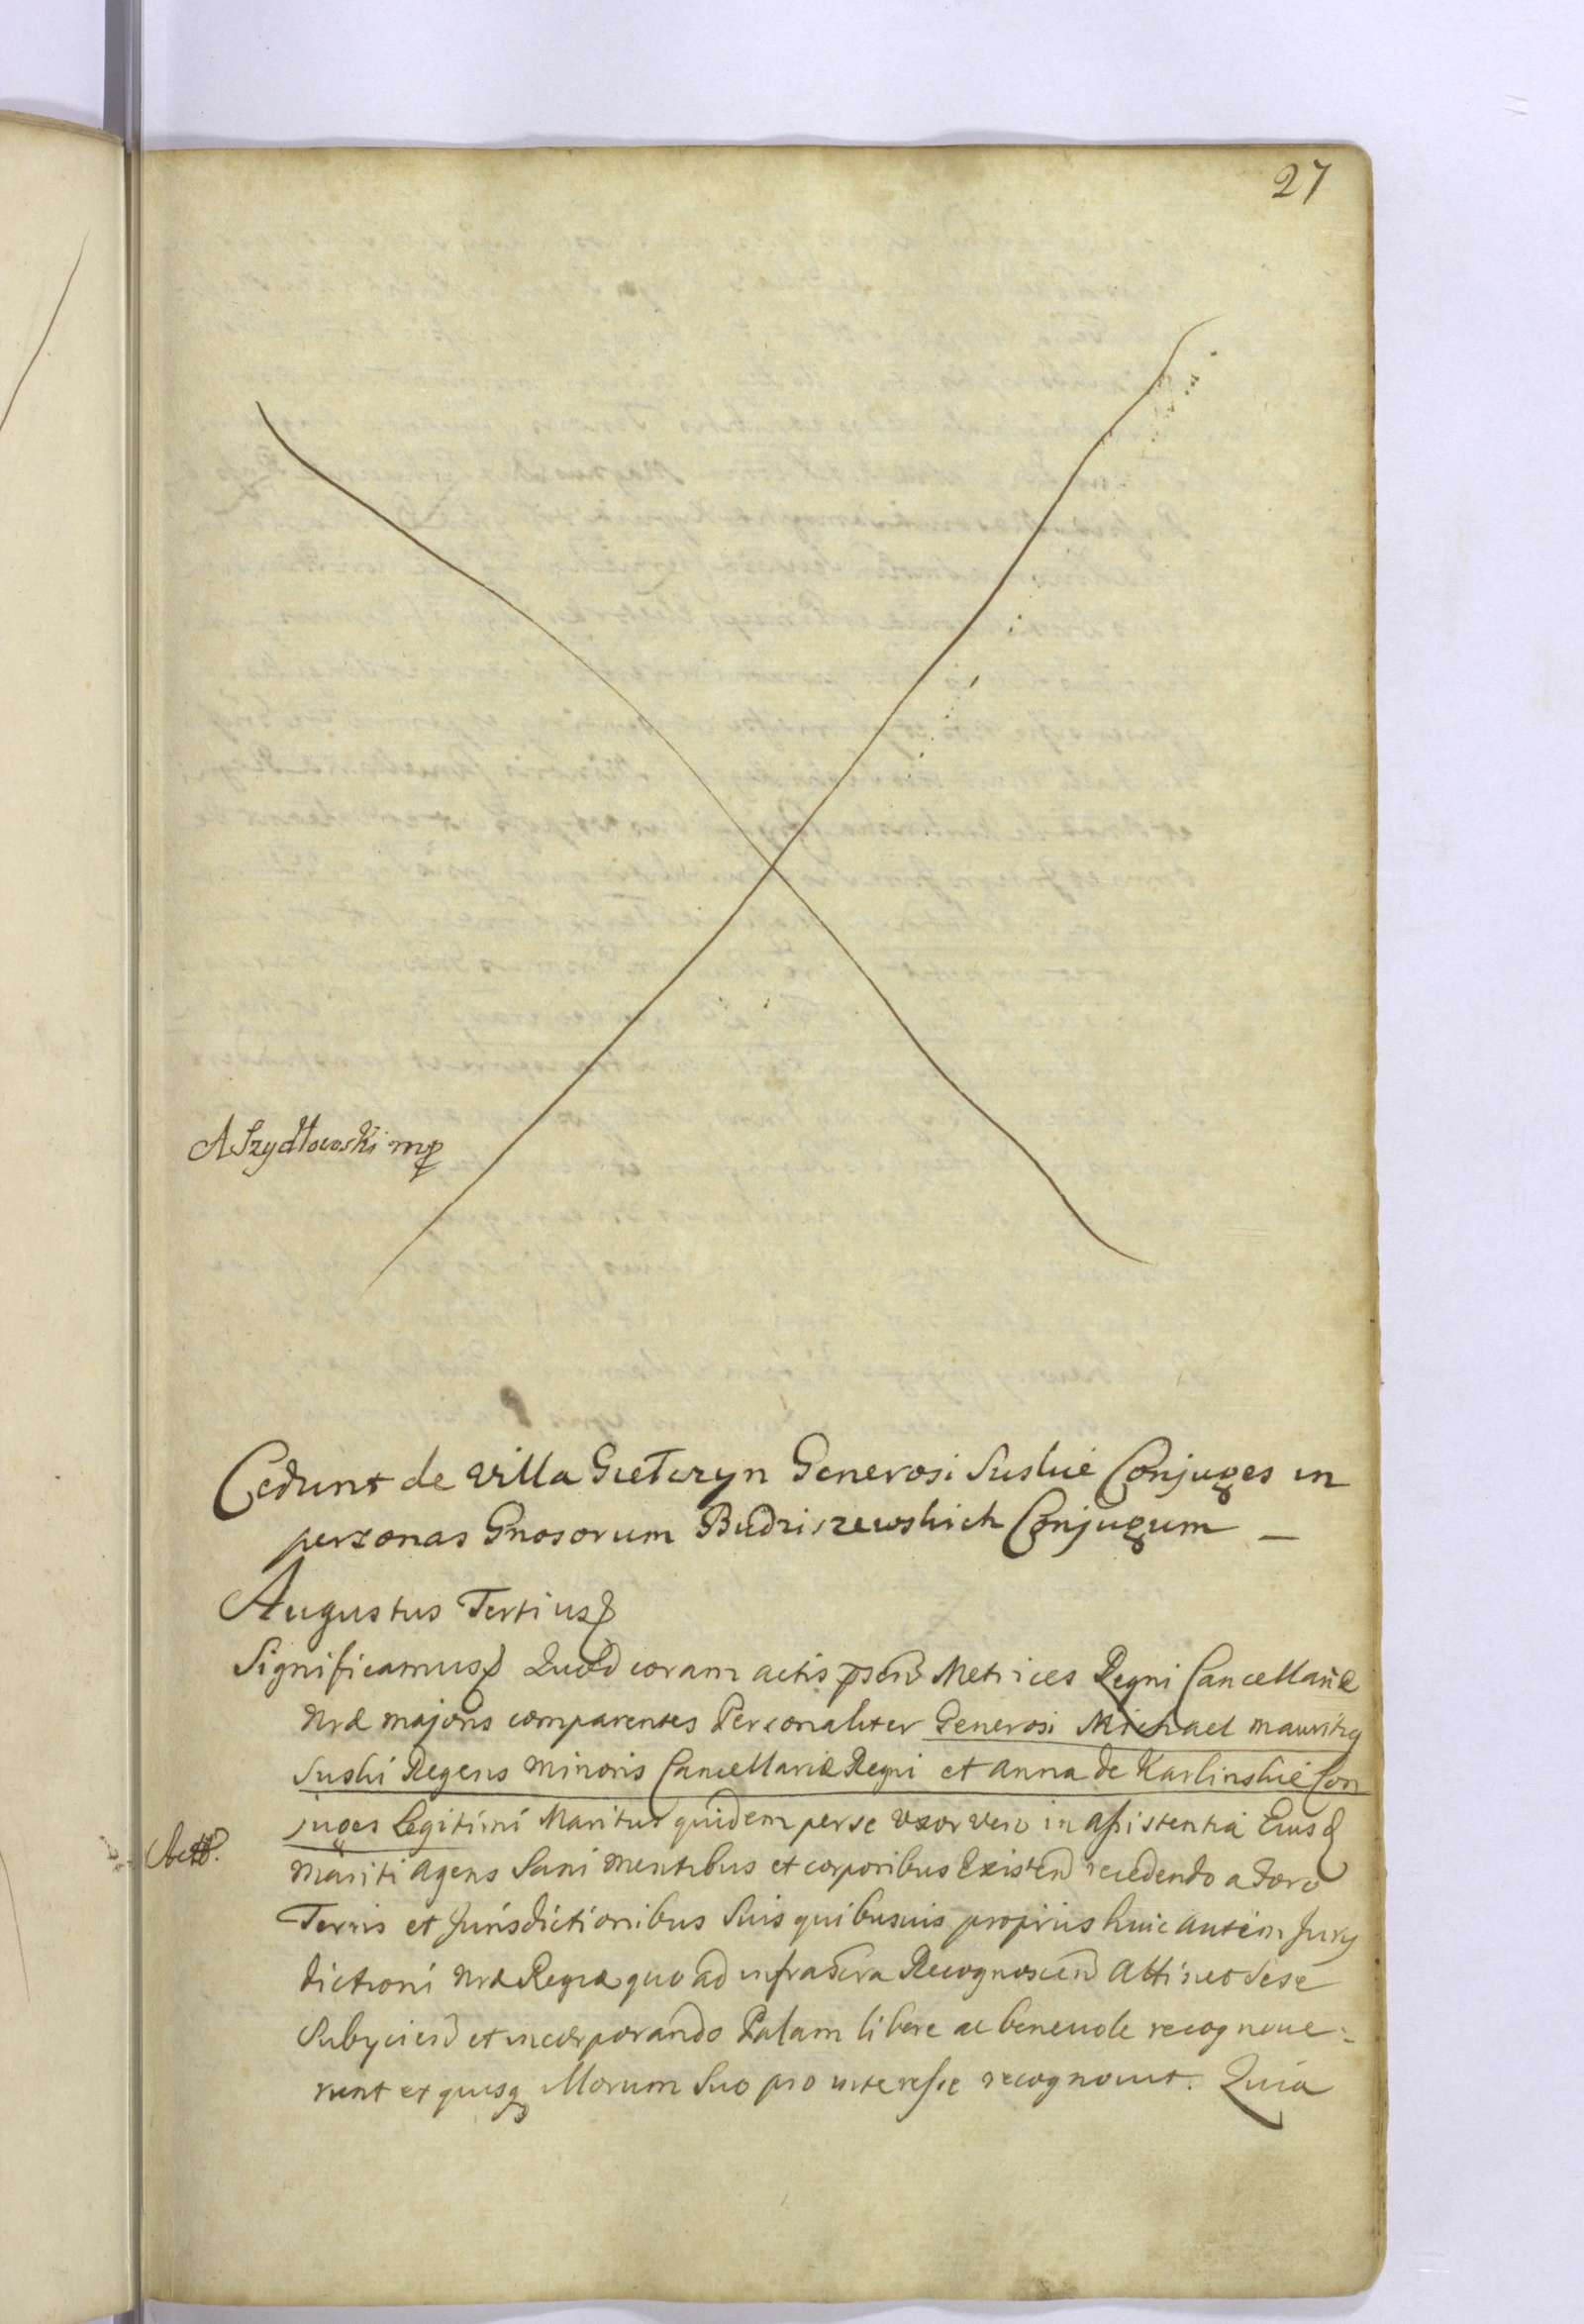 27
ASzydłowski mp
Cedunt de Villa Giełczyn Generosi Suskie Conjuges in
personas Gnosorum Budziszewskich Conjugum —
Augustus Tertius
Significamus Quod coram actis psen Metrices Regni Cancellariæ
Nræ majoris comparentes Personaliter Generosi Michael Mauritig
Suski Regens Minoris Cancellariæ Regni et Anna de Karlinskie Con
juges Legitimi Maritus quidem per se Uxor vero in assistentia Eius
Mariti agens Sani Mentibus et corporibus Existen recedendo a Foro
Terris et Jurisdictionibus Suis quibusuis propriis huic autem Jury
dictioni Nræ Regiæ quo ad infrascra Recognoscen Attinet Sese
Subyciend et incorporando Palam libere ac beneuole recognoue-
runt et quisq Illorum Suo pro interesse recognouit. Quia